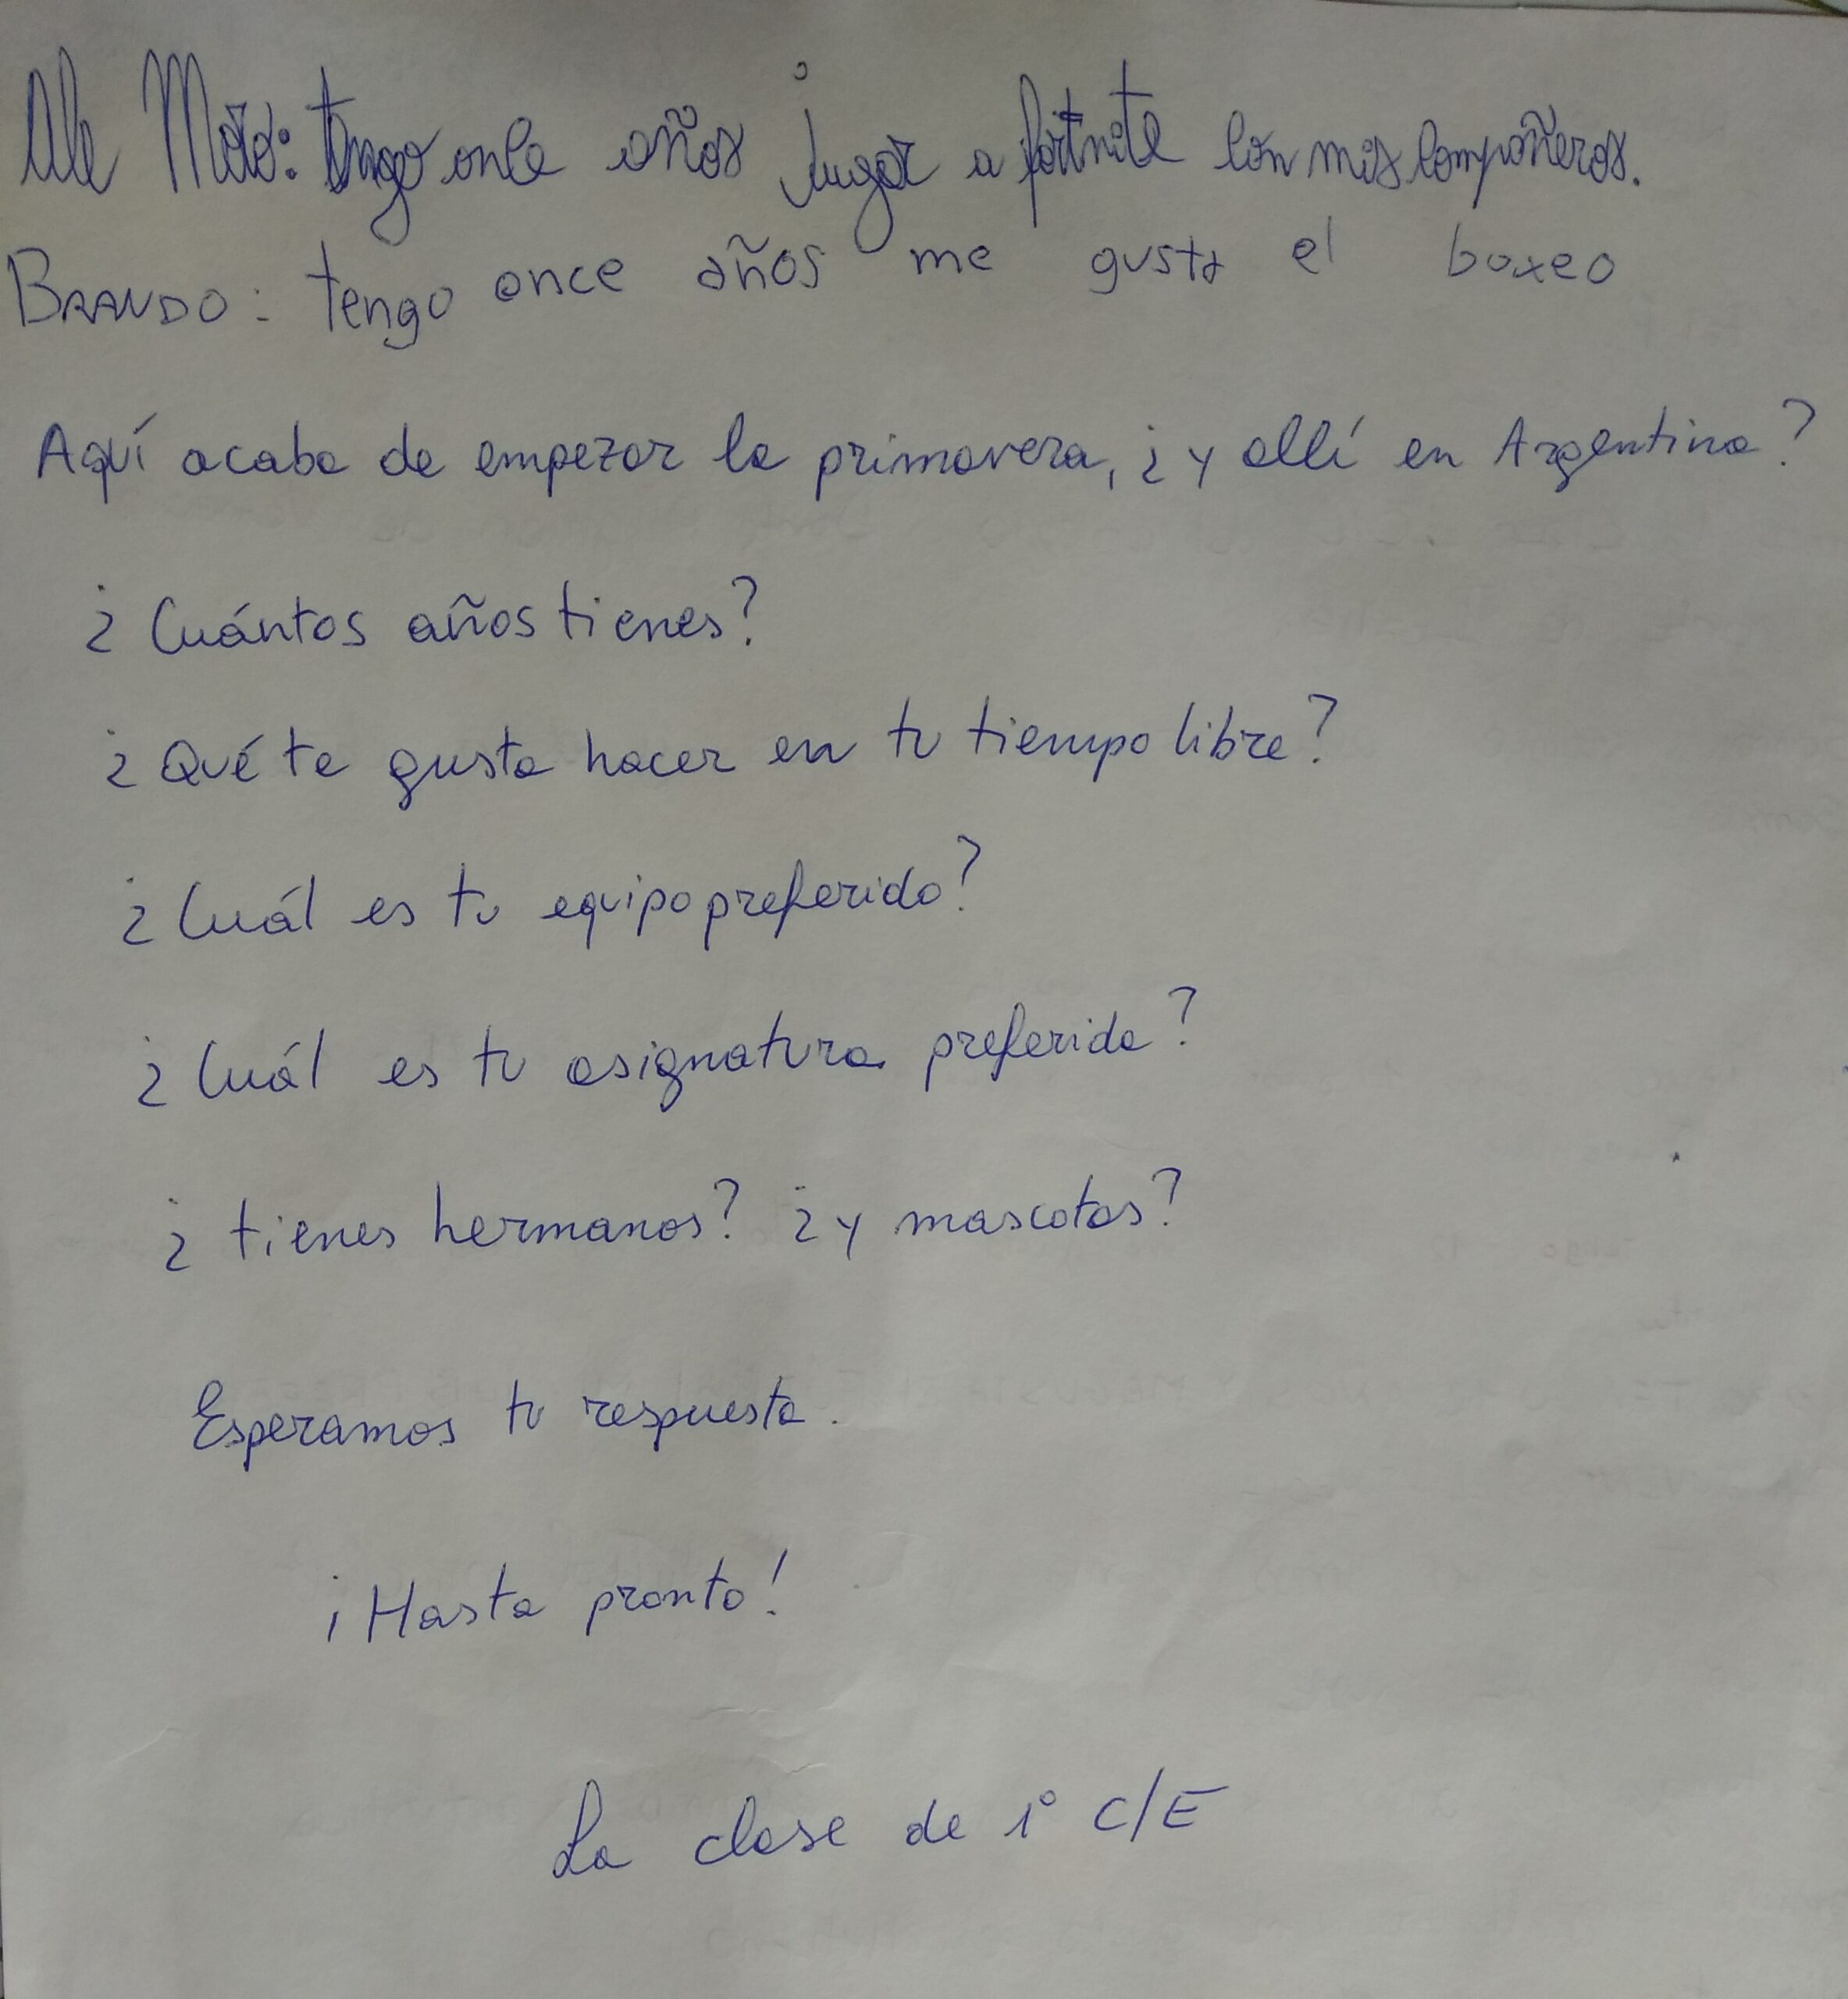 Ale Moto: tengo once años jugar a fortnite con mis compañeros.
BRANDO: tengo once años me gusta el boxeo
Aquí acaba de empezar la primavera, ¿y allí en Argentina?
¿Cuántos años tienes?
¿Qué te gusta hacer en tu tiempo libre?
¿Cuál es tu equipo preferido?
¿Cuál es tu asignatura preferida?
¿tienes hermanos? ¿y mascotas?
Esperamos tu respuesta.
¡Hasta pronto!
La clase de 1° C/E